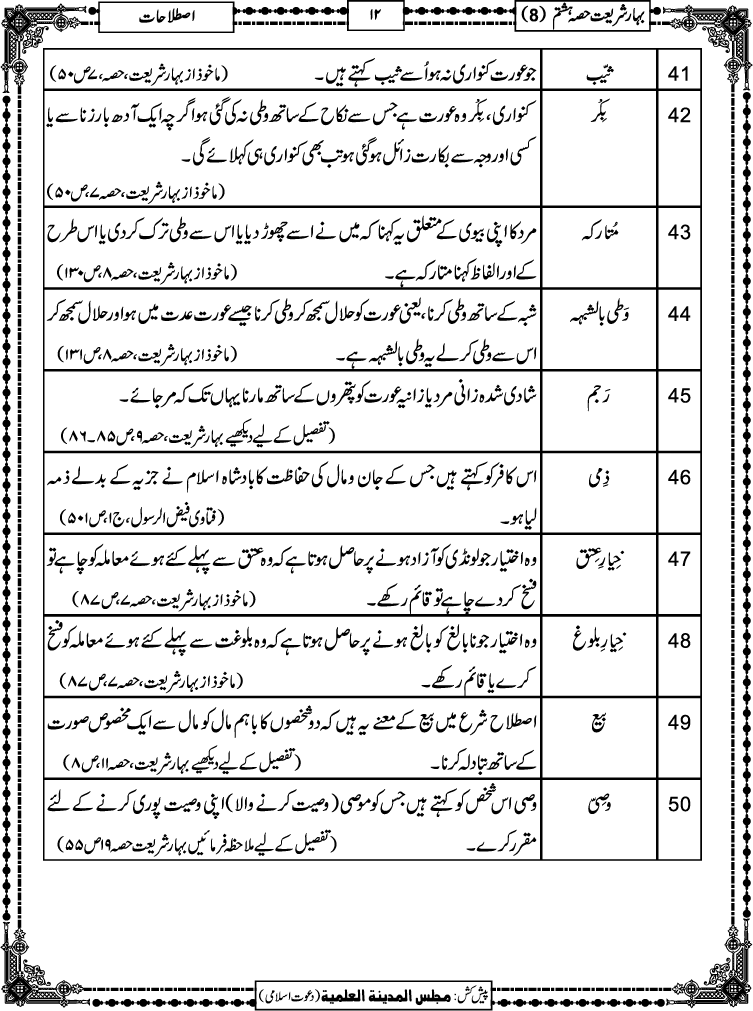 بہار شریعت حصہ ہشتم (8)
۱۲
اصطلاحات
41 ثیّب جو عورت کنواری نہ ہو اُسے ثیب کہتے ہیں۔ (ماخوذ از بہار شریعت، حصہ، ۷ ص ۵۰)
42 بِکْر کنواری، بِکْر وہ عورت ہے جس سے نکاح کے ساتھ وطی نہ کی گئی ہو اگرچہ ایک آدھ بار زنا سے یا
کسی اور وجہ سے بکارت زائل ہو گئی ہو تب بھی کنواری ہی کہلائے گی۔
(ماخوذ از بہار شریعت، حصہ ۷، ص ۵۰)
43 مُتارکہ مرد کا اپنی بیوی کے متعلق یہ کہنا کہ میں نے اسے چھوڑ دیا یا اس سے وطی ترک کر دی یا اس طرح
کے اور الفاظ کہنا متارکہ ہے۔ (ماخوذ از بہار شریعت، حصہ ۸، ص ۱۳۰)
44 وَطی بالشبہہ شبہ کے ساتھ وطی کرنا، یعنی عورت کو حلال سمجھ کر وطی کرنا جیسے عورت عدت میں ہو اور حلال سمجھ کر
اس سے وطی کر لے یہ وطی بالشبہہ ہے۔ (ماخوذ از بہار شریعت، حصہ ۸، ص ۱۳۱)
45 رَجم شادی شدہ زانی مرد یا زانیہ عورت کو پتھروں کے ساتھ مارنا یہاں تک کہ مر جائے۔
(تفصیل کے لیے دیکھیے بہار شریعت، حصہ ۹، ص ۸۵۔۸۶)
46 ذِمی اس کافر کو کہتے ہیں جس کے جان و مال کی حفاظت کا بادشاہ اسلام نے جزیہ کے بدلے ذمہ
لیا ہو۔ (فتاوی فیض الرسول، ج ۱، ص ۵۰۱)
47 خِیارِ عِتق وہ اختیار جو لونڈی کو آزاد ہونے پر حاصل ہوتا ہے کہ وہ عتق سے پہلے کئے ہوئے معاملہ کو چاہے تو
فسخ کر دے چاہے تو قائم رکھے۔ (ماخوذ از بہار شریعت، حصہ ۷، ص ۸۷)
48 خِیارِ بلوغ وہ اختیار جو نابالغ کو بالغ ہونے پر حاصل ہوتا ہے کہ وہ بلوغت سے پہلے کئے ہوئے معاملہ کو فسخ
کرے یا قائم رکھے۔ (ماخوذ از بہار شریعت، حصہ ۷، ص ۸۷)
49 بیع اصطلاح شرع میں بیع کے معنے یہ ہیں کہ دو شخصوں کا باہم مال کو مال سے ایک مخصوص صورت
کے ساتھ تبادلہ کرنا۔ (تفصیل کے لیے دیکھیے بہار شریعت، حصہ ۱۱، ص ۸)
50 وصیّ وصی اس شخص کو کہتے ہیں جس کو موصی (وصیت کرنے والا) اپنی وصیت پوری کرنے کے لئے
مقرر کرے۔ (تفصیل کے لیے ملاحظہ فرمائیں بہار شریعت حصہ ۱۹ ص ۵۵)
پیش کش: مجلس المدينة العلمية (دعوت اسلامی)